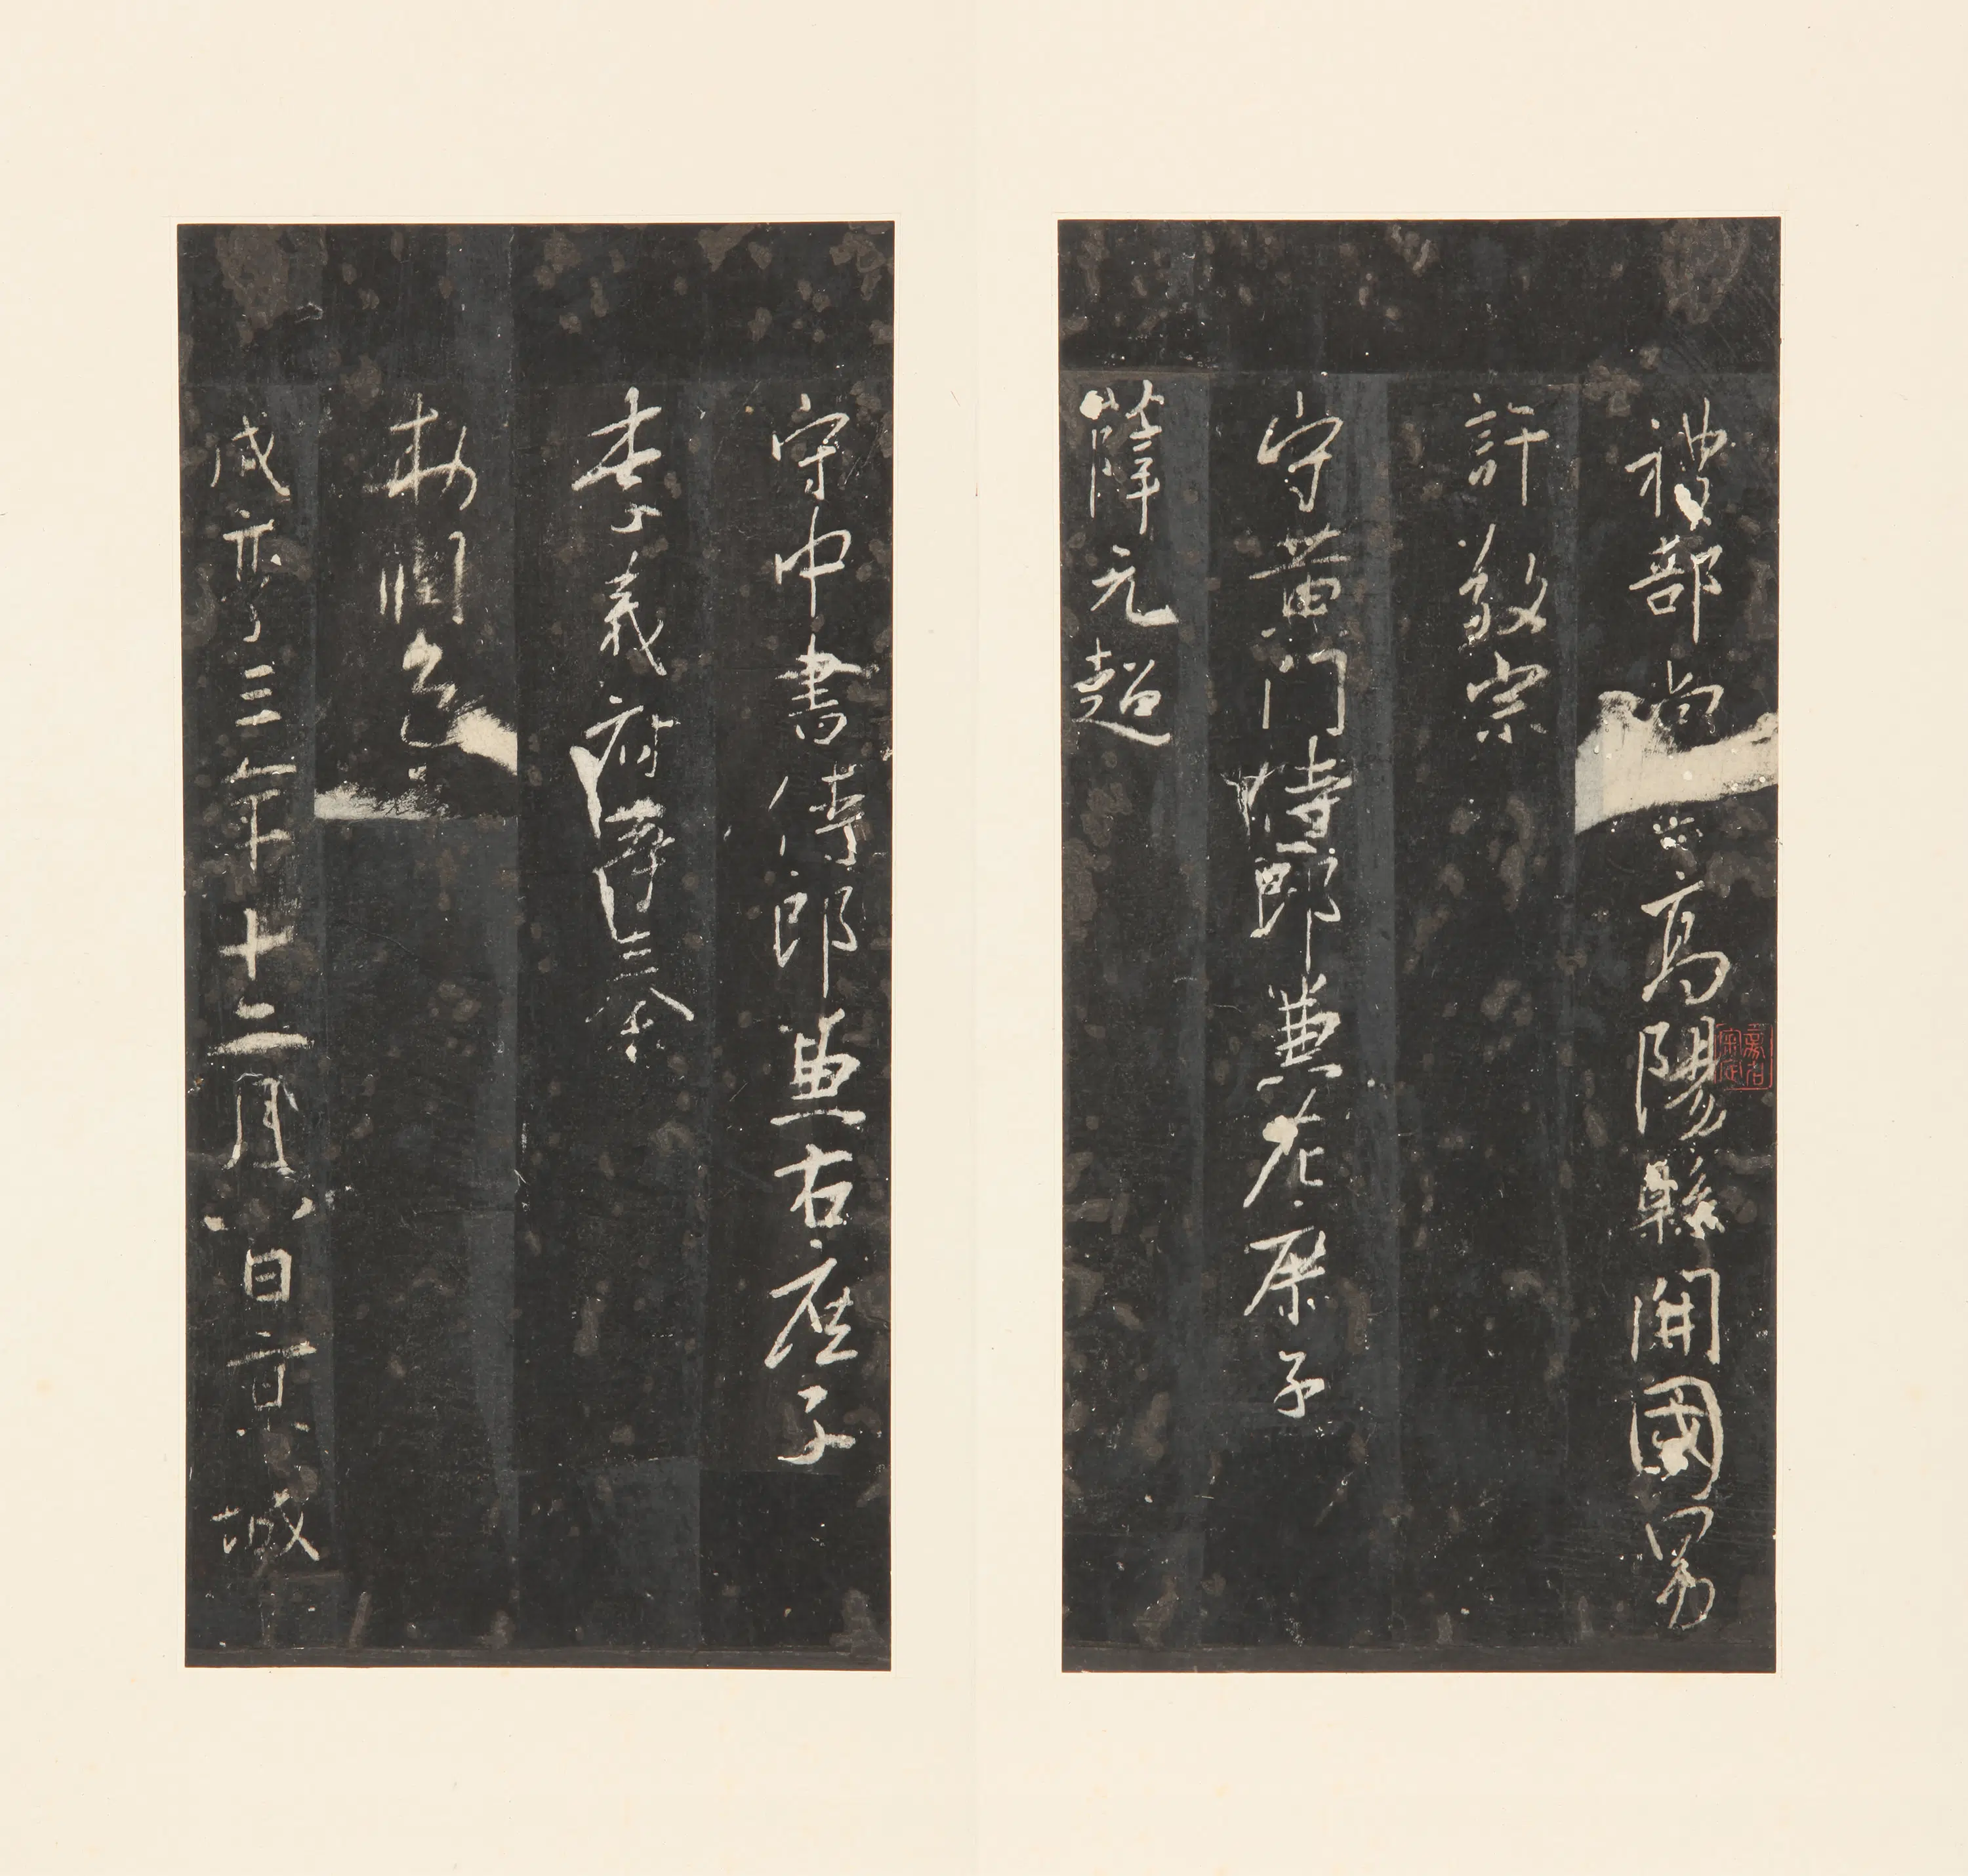 禮部尚書高陽縣開國男
許敬宗
守黃門侍郎兼左庶子
薛元超
守中書侍郎兼右庶子
李義府奉三藏
敕潤色
咸亨三年十二月八日京城